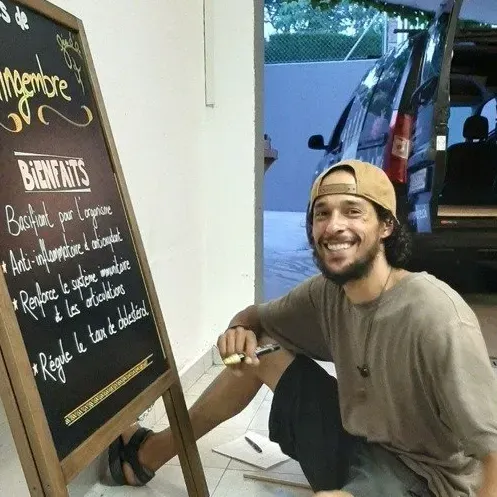 s de
ingembre
BiENFAiTS
Basifiant pour l'organisme
Anti-inflammatoire & antioxydant
Renforce le système immunitaire
& les articulations
Régule le taux de cholestérol